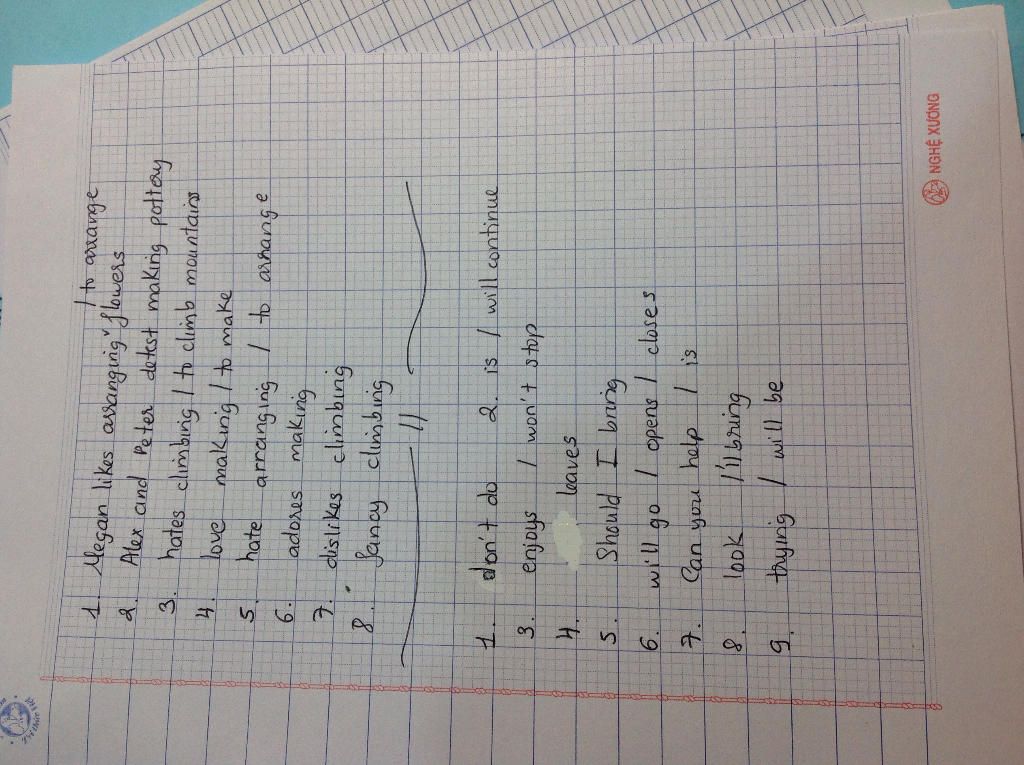 / to arrange
1. Megan likes arranging ˅ flowers
2. Alex and Peter detest making pottery
3. hates climbing / to climb mountains
4. love making / to make
5. hate arranging / to arrange
6. adores making
7. dislikes climbing
8. fancy climbing
1. don't do 2. is / will continue
3. enjoys / won't stop
4. leaves
5. Should I bring
6. will go / opens / closes
7. Can you help / is
8. look / I'll bring
9. trying / will be
NGHỆ XƯƠNG